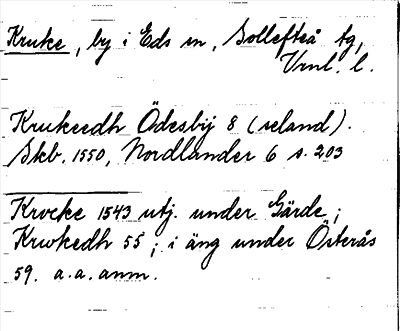 Kruke, by i Eds sn, Sollefteå tg,
Vrnl. l.
Krukeedh Ödesbÿ 8 (seland).
Skb. 1550, Nordlander 6 s. 203
Krocke 1543 utj. under Gärde;
Krwkedh 55; i äng under Österås
59. a.a. anm.